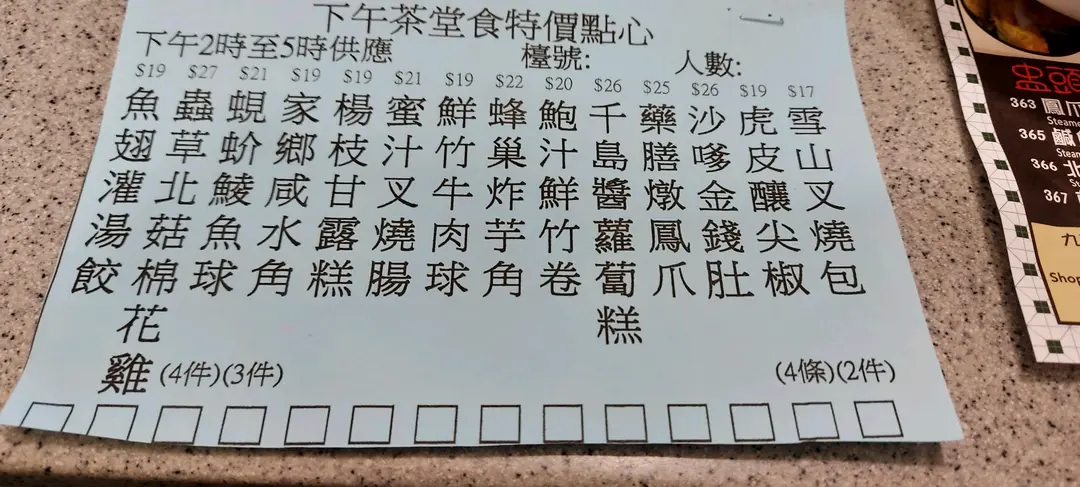 下午茶堂食特價點心
下午2時至5時供應
檯號:
人數:
$19 $27 $21 $19 $19 $21 $19 $22 $20 $26 $25 $26 $19 $17
雪山叉燒包
(2件)
虎皮釀尖椒
(4條)
沙嗲金錢肚
藥膳燉鳳爪
千島醬蘿蔔糕
鮑汁鮮竹卷
蜂巢炸芋角
鮮竹牛肉球
蜜汁叉燒腸
楊枝甘露糕
家鄉咸水角
(3件)
蜆蚧鯪魚球
(4件)
蟲草北菇棉花雞
魚翅灌湯餃
363 鳳爪
365 鹹
366 北
367
九